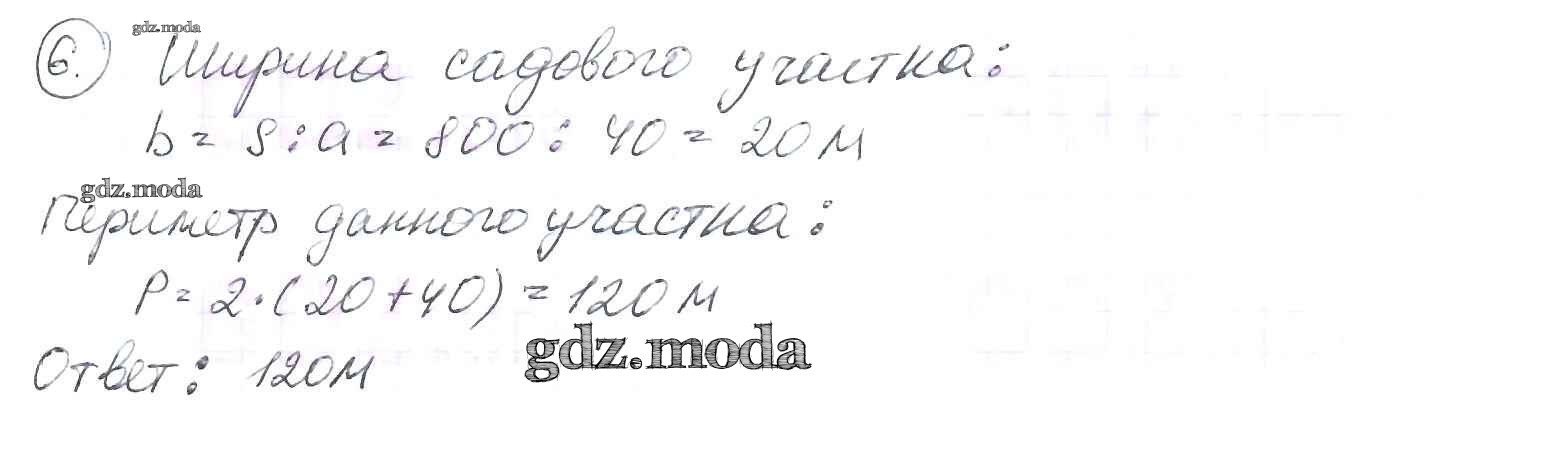 gdz.moda
6. Ширина садового участка:
b = S : a = 800 : 40 = 20 м
gdz.moda
Периметр данного участка:
P = 2 · (20 + 40) = 120 м
gdz.moda
Ответ: 120 м